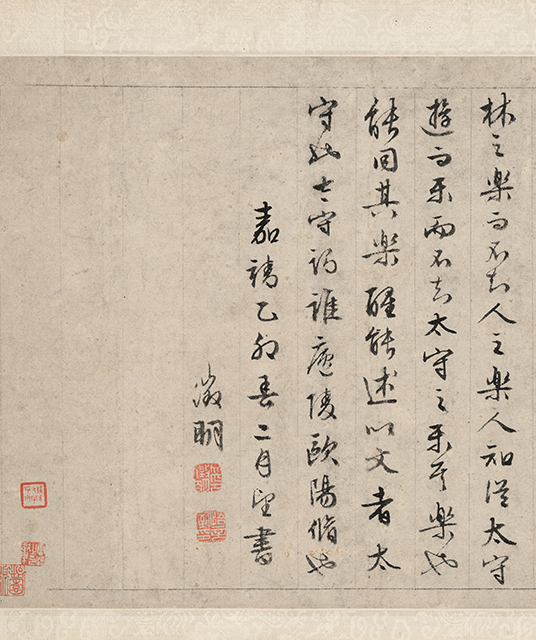 林之樂而不知人之樂人知從太守
遊而樂而不知太守之樂其樂也
能同其樂醒能述以文者太
守也太守謂誰廬陵歐陽脩也
嘉靖乙卯春二月望書
徵明